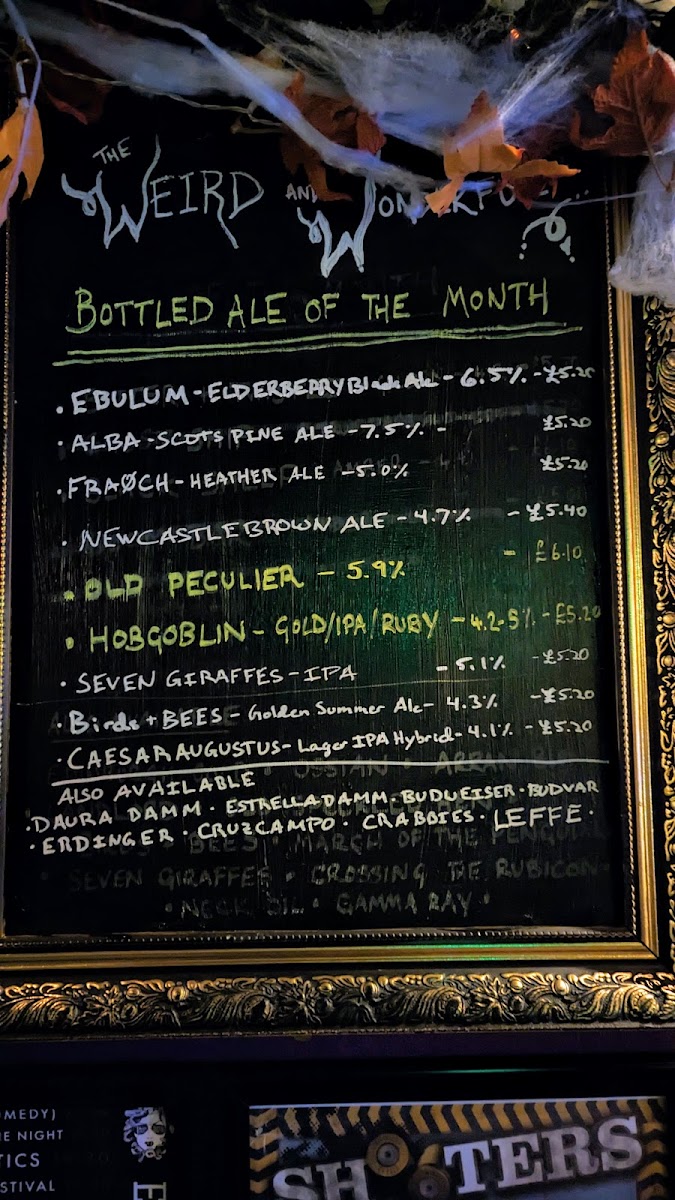 THE
WEIRD AND WONDERFUL
BOTTLED ALE OF THE MONTH
• EBULUM - ELDERBERRY Black Ale - 6.5% - £5.20
• ALBA - SCOTS PINE ALE - 7.5% - £5.20
• FRAØCH - HEATHER ALE - 5.0% £5.20
• NEWCASTLE BROWN ALE - 4.7% - £5.40
• OLD PECULIER - 5.9% - £6.10
• HOBGOBLIN - GOLD/IPA/RUBY - 4.2-5% - £5.20
• SEVEN GIRAFFES - IPA - 5.1% - £5.20
• Birds + BEES - Golden Summer Ale - 4.3% - £5.20
• CAESAR AUGUSTUS - Lager IPA Hybrid - 4.1% - £5.20
ALSO AVAILABLE
• DAURA DAMM • ESTRELLA DAMM • BUDWEISER • BUDVAR
• ERDINGER • CRUZCAMPO • CRABBIES • LEFFE •
BEES • MARCH OF THE PENGUINS
SEVEN GIRAFFES • CROSSING THE RUBICON
• NECK OIL • GAMMA RAY •
OMEDY)
E NIGHT
TICS
STIVAL
SHOOTERS